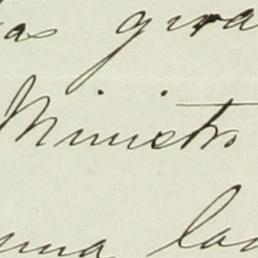 as gra
Ministro
una la